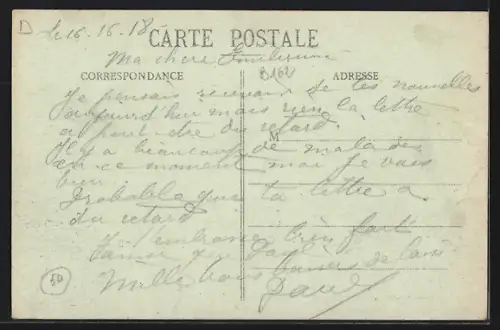 D
Le 16.16.18
CARTE POSTALE
Ma chere
CORRESPONDANCE
B162
ADRESSE
Je pensais recevoir de tes nouvelles
aujourd'hui mais rien la lettre
a peut etre du retard.
M
Il y a beaucoup de malades
en ce moment moi je vais
bien.
Probable que ta lettre a
du retard
J'embrasse bien fort
Mille bons baisers de
Paul
50